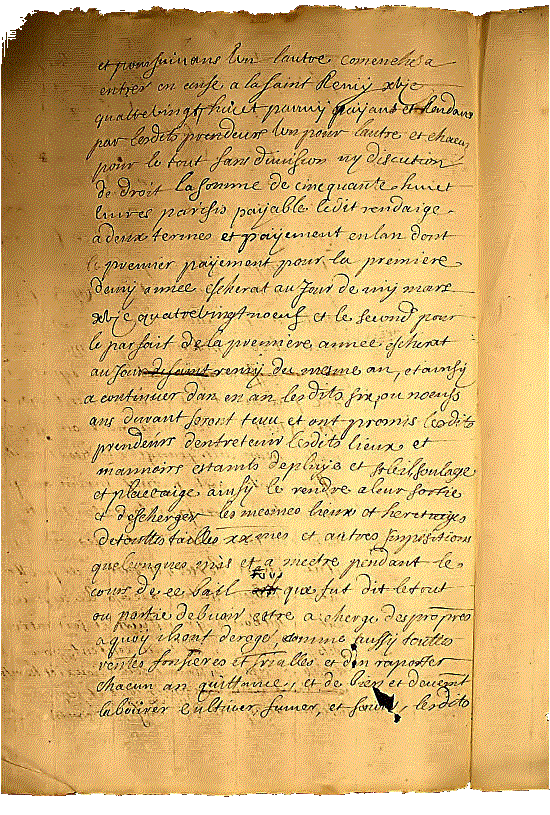 et poursuivans lun lautre comenchera
entrer en cense a la saint Remy xvjc
quattrevingt huict parmy payans et Rendans
par lesdits prendeurs lun pour lautre et chacun
pour le tout sans division ny discution
de droit la somme de cincquante huict
livres parisis payable ledit rendaige
a deux termes et payement en lan dont
le premier payement pour la premiere
demy année escherat au Jour de my mars
xvjc quatrevingt noeuf et le second pour
le parfait de la premiere année escherat
au Jour de saint remy du mesme an, et ainsy
a continuer dan en an lesdits six, ou noeufs
ans durant seront tenu, et ont promis lesdits
prendeurs dentretenir lesdits lieux et
mannoirs estants de pluye et soleil, soulage
et placcaige ainsy le rendre a leur sortie
et descherger les mesmes lieux et heretaiges
de touttes tailles xxmes et autres Impositions
quelconques mis et a mectre pendant le
cours de ce bail que fut dit le tout
ou partie debvoir estre a cherge des propres
a quoy ilz ont derogé, comme aussy touttes
rentes fonsieres et et den raporter
chacun an quittance, et de bien et deuement
labourer cultiver, fumer, et lesdits